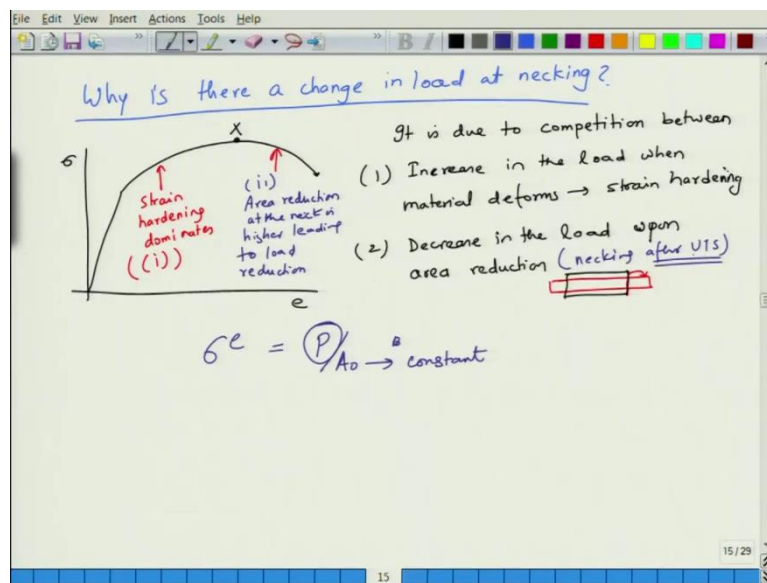 File Edit View Insert Actions Tools Help
Why is there a change in load at necking?
σ
X
Strain
hardening
dominates
((i))
(ii)
Area reduction
at the neck is
higher leading
to load
reduction
e
It is due to competition between
(1) Increase in the load when
material deforms → strain hardening
(2) Decrease in the load upon
area reduction (necking after UTS)
σe = P/A0 → constant
15/29
15